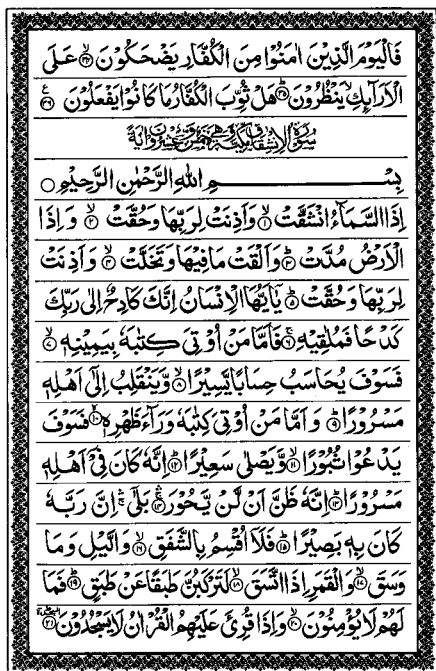 فَالْيَوْمَ الَّذِيْنَ اٰمَنُوْا مِنَ الْكُفَّارِ يَضْحَكُوْنَ ۙ﴿۳۴﴾ عَلَى
الْاَرَآىِٕكِ ۙ يَنْظُرُوْنَ ؕ﴿۳۵﴾ هَلْ ثُوِّبَ الْكُفَّارُ مَا كَانُوْا يَفْعَلُوْنَ ﴿۳۶﴾
بِسْمِ اللّٰهِ الرَّحْمٰنِ الرَّحِيْمِ
اِذَا السَّمَآءُ انْشَقَّتْ ۙ﴿۱﴾ وَاَذِنَتْ لِرَبِّهَا وَحُقَّتْ ۙ﴿۲﴾ وَاِذَا
الْاَرْضُ مُدَّتْ ؕ﴿۳﴾ وَاَلْقَتْ مَا فِيْهَا وَتَخَلَّتْ ۙ﴿۴﴾ وَاَذِنَتْ
لِرَبِّهَا وَحُقَّتْ ؕ﴿۵﴾ يٰۤاَيُّهَا الْاِنْسَانُ اِنَّكَ كَادِحٌ اِلٰى رَبِّكَ
كَدْحًا فَمُلٰقِيْهِ ۚ﴿۶﴾ فَاَمَّا مَنْ اُوْتِىَ كِتٰبَهٗ بِيَمِيْنِهٖ ۙ﴿۷﴾
فَسَوْفَ يُحَاسَبُ حِسَابًا يَّسِيْرًا ۙ﴿۸﴾ وَّيَنْقَلِبُ اِلٰۤى اَهْلِهٖ
مَسْرُوْرًا ؕ﴿۹﴾ وَاَمَّا مَنْ اُوْتِىَ كِتٰبَهٗ وَرَآءَ ظَهْرِهٖ ۙ﴿۱۰﴾ فَسَوْفَ
يَدْعُوْا ثُبُوْرًا ۙ﴿۱۱﴾ وَّيَصْلٰى سَعِيْرًا ؕ﴿۱۲﴾ اِنَّهٗ كَانَ فِىْۤ اَهْلِهٖ
مَسْرُوْرًا ؕ﴿۱۳﴾ اِنَّهٗ ظَنَّ اَنْ لَّنْ يَّحُوْرَ ۚ﴿۱۴﴾ بَلٰٓى ۚ اِنَّ رَبَّهٗ
كَانَ بِهٖ بَصِيْرًا ؕ﴿۱۵﴾ فَلَاۤ اُقْسِمُ بِالشَّفَقِ ۙ﴿۱۶﴾ وَالَّيْلِ وَمَا
وَسَقَ ۙ﴿۱۷﴾ وَالْقَمَرِ اِذَا اتَّسَقَ ۙ﴿۱۸﴾ لَتَرْكَبُنَّ طَبَقًا عَنْ طَبَقٍ ؕ﴿۱۹﴾ فَمَا
لَهُمْ لَا يُؤْمِنُوْنَ ۙ﴿۲۰﴾ وَاِذَا قُرِئَ عَلَيْهِمُ الْقُرْاٰنُ لَا يَسْجُدُوْنَ ؕ﴿۲۱﴾